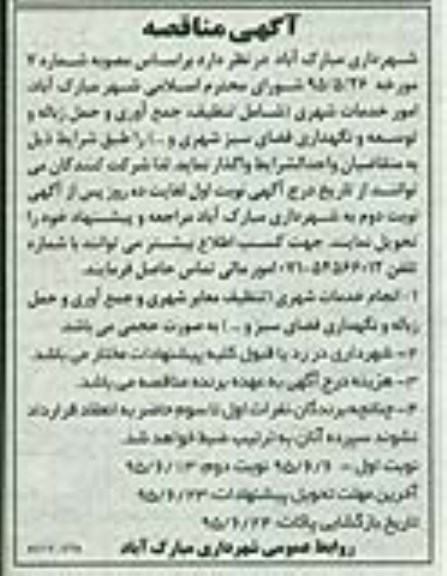 آگهی مناقصه
شهرداری مبارک آباد در نظر دارد براساس مصوبه شماره ۷
مورخه ۹۵/۵/۲۶ شورای محترم اسلامی شهر مبارک آباد،
امور خدمات شهری (شامل تنظیف، جمع آوری و حمل زباله و
توسعه و نگهداری فضای سبز شهری و ..) را طبق شرایط ذیل
به متقاضیان واجدالشرایط واگذار نماید. لذا شرکت کنندگان می
توانند از تاریخ درج آگهی نوبت اول لغایت ده روز پس از آگهی
نوبت دوم به شهرداری مبارک آباد مراجعه و پیشنهاد خود را
تحویل نمایند. جهت کسب اطلاع بیشتر می توانند با شماره
تلفن ۰۷۱-۵۴۵۶۶۰۱۲ امور مالی تماس حاصل فرمایند.
۱- انجام خدمات شهری (تنظیف معابر شهری و جمع آوری و حمل
زباله و نگهداری فضای سبز و ..) به صورت حجمی می باشد.
۲- شهرداری در رد یا قبول کلیه پیشنهادات مختار می باشد.
۳- هزینه درج آگهی به عهده برنده مناقصه می باشد.
۴- چنانچه برندگان نفرات اول تا سوم حاضر به انعقاد قرارداد
نشوند سپرده آنان به ترتیب ضبط خواهد شد.
نوبت اول - ۹۵/۶/۶ نوبت دوم: ۹۵/۶/۱۳
آخرین مهلت تحویل پیشنهادات: ۹۵/۶/۲۳
تاریخ بازگشایی پاکات: ۹۵/۶/۲۴
روابط عمومی شهرداری مبارک آباد